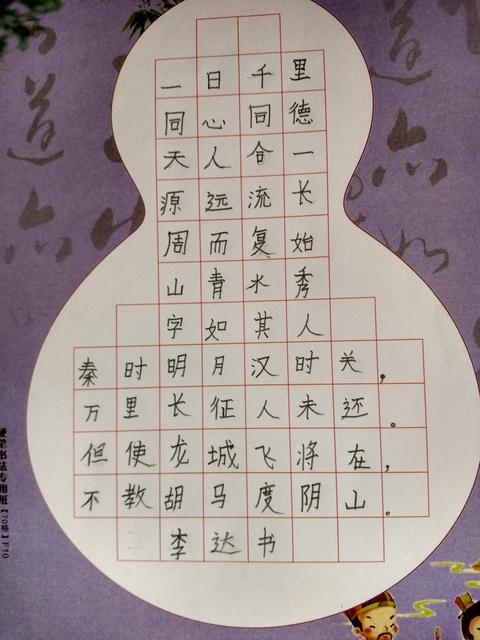 一日千里
同心同德
天人合一
源远流长
周而复始
山青水秀
字如其人
秦时明月汉时关，
万里长征人未还。
但使龙城飞将在，
不教胡马度阴山。
李达书
硬笔书法专用纸【70格】F10